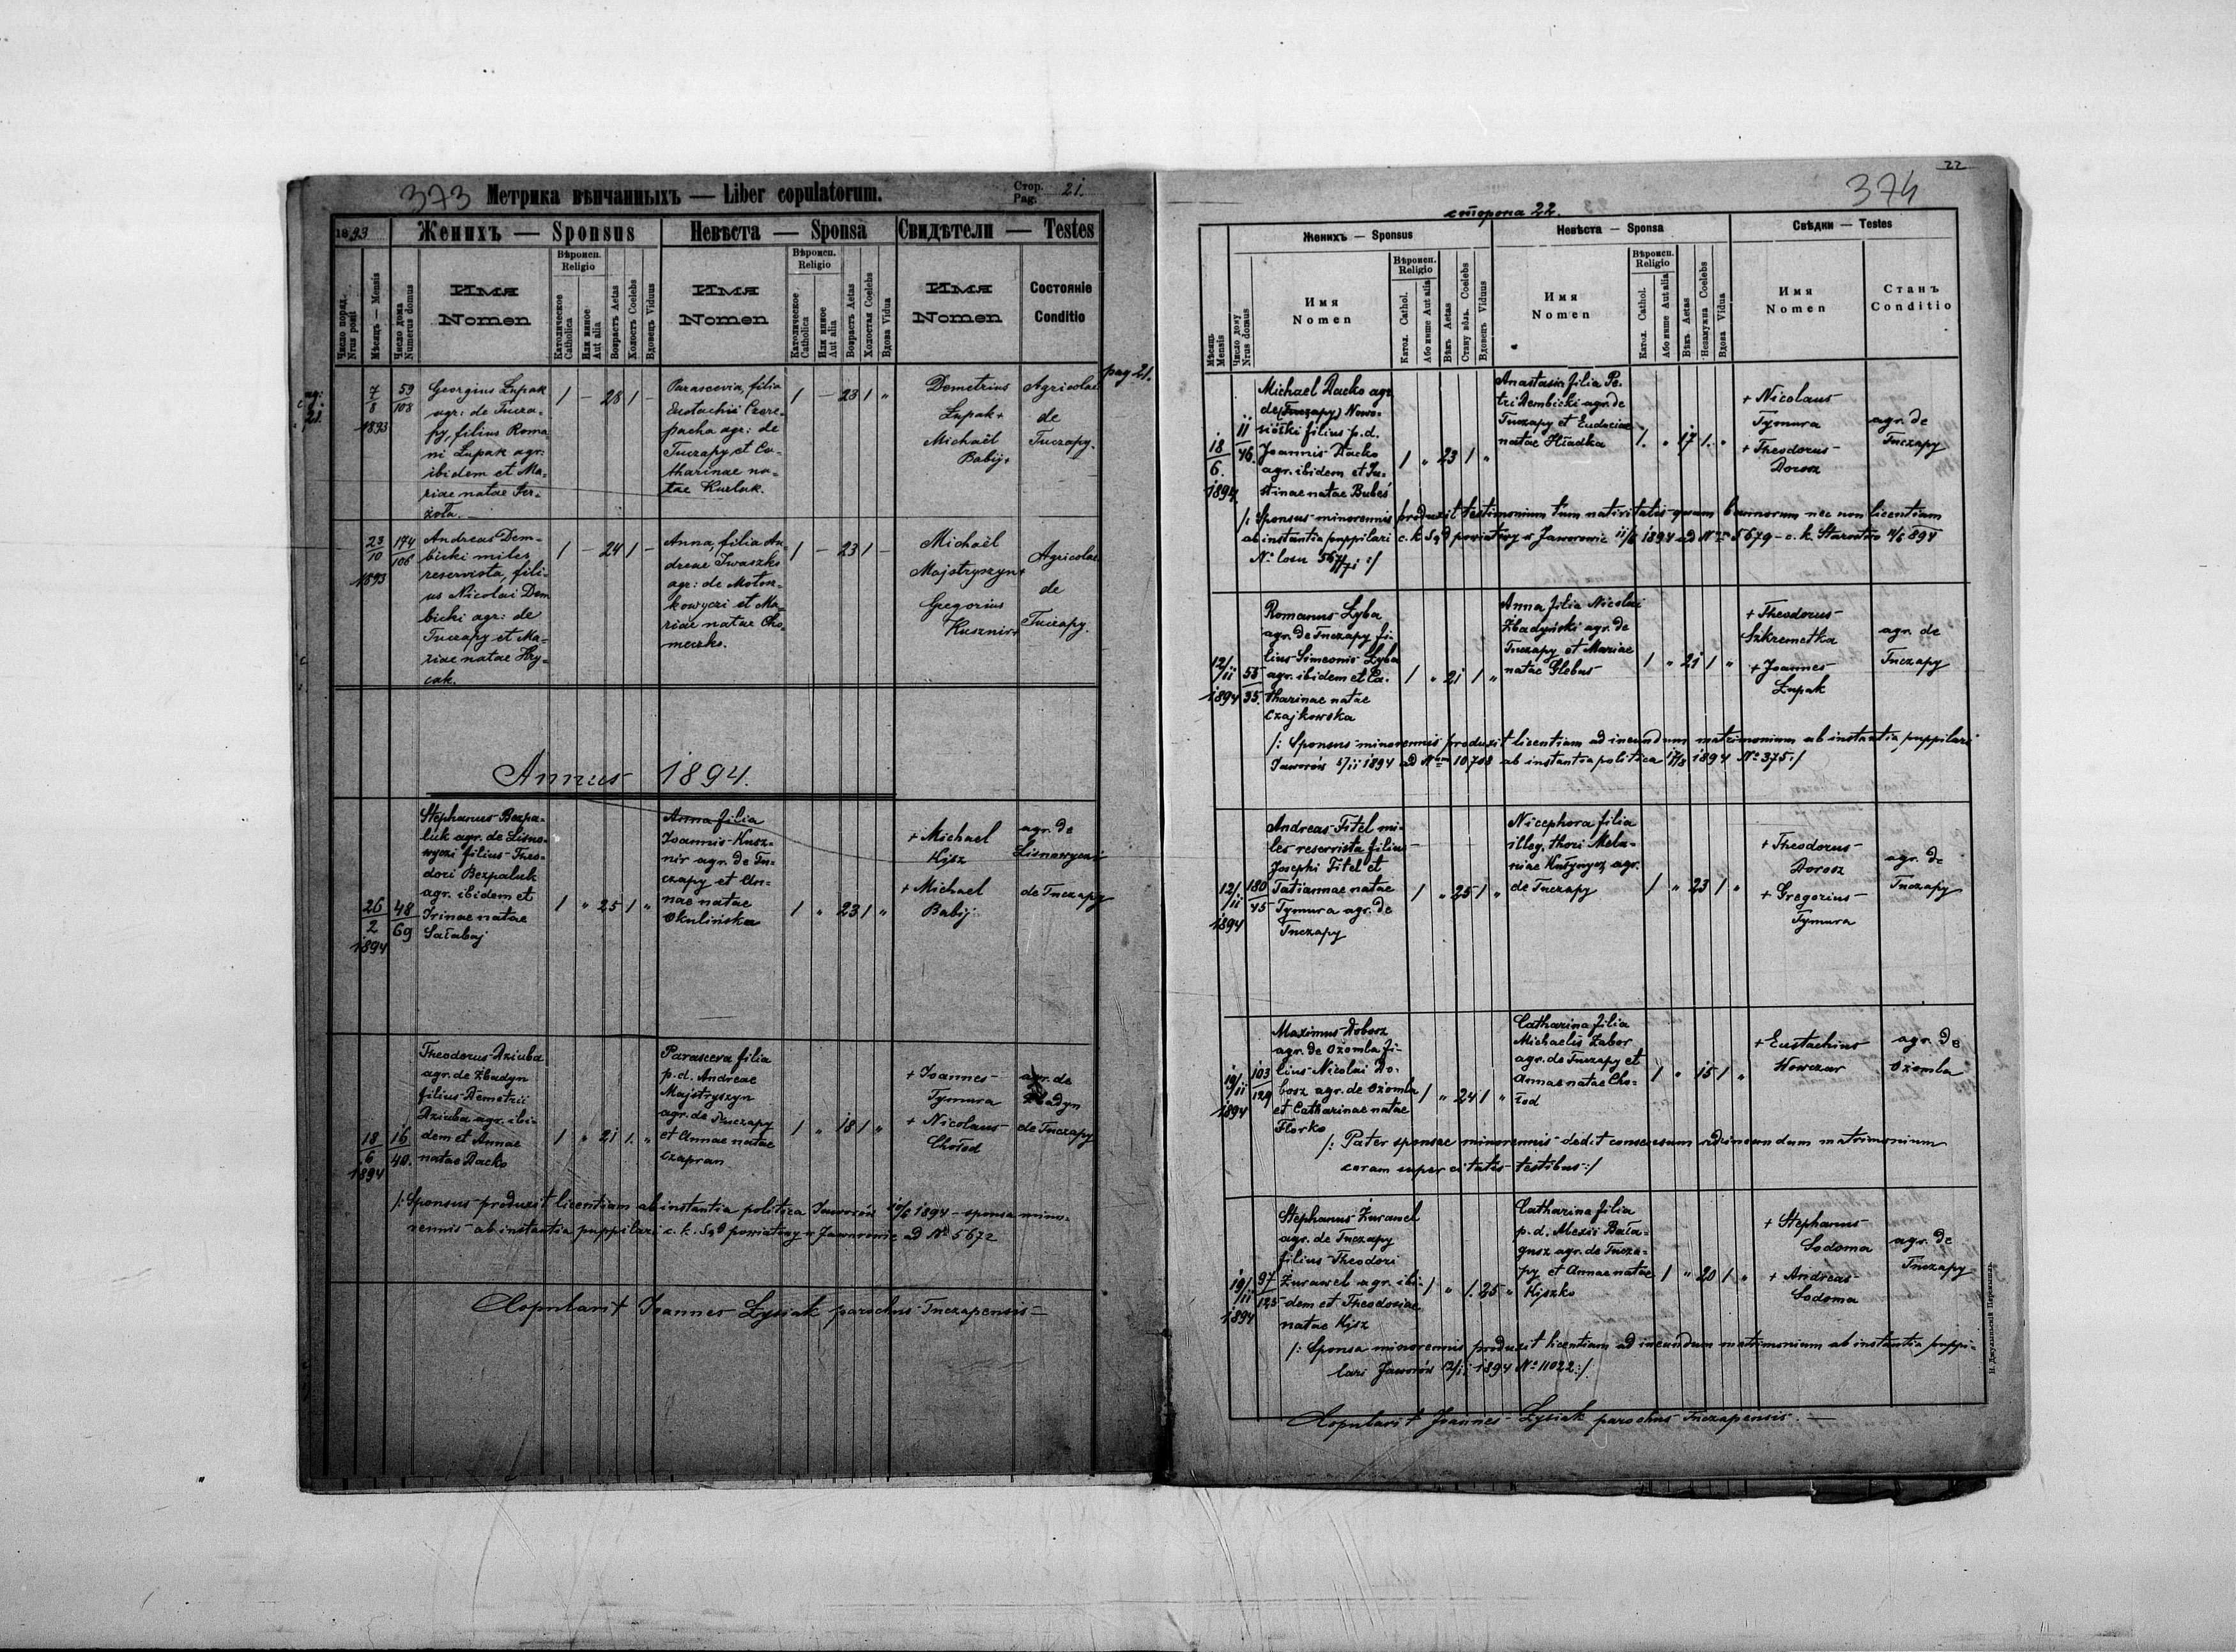 373 Метрика вѣнчанныхъ — Liber copulatorum.
Стор. Pag. 21.
1893 Женихъ — Sponsus
Невѣста — Sponsa
Свидѣтели — Testes
Число поряд. Nrus posit
Мѣсяцъ — Mensis
Число дома Numerus domus
Имя Nomen
Вѣроисп. Religio
Католическое Catholica
Или инное Aut alia
Возрастъ Aetas
Холостъ Coelebs
Вдовецъ Viduus
Имя Nomen
Вѣроисп. Religio
Католическое Catholica
Или инное Aut alia
Возрастъ Aetas
Холостая Coelebs
Вдова Vidua
Имя Nomen
Состояніе Conditio
pag. 21.
7/8 1893
59/108
Georgius Łupak
agr: de Tucza-
py, filius Roma-
ni Łupak agr:
ibidem et Ma-
riae natae
1 — 28 1 —
Parascevia, filia
Eustachii Czere-
pacha agr: de
Tuczapy et Ca-
tharinae na-
tae Kuzluk.
1 — 23 1 "
Demetrius
Łupak +
Michaël
Babij +
Agricolae
de
Tuczapy.
23/10 1893
174/106
Andreas Dem-
bicki miles
reservista, fili-
us Nicolai Dem
bicki agr: de
Tuczapy et Ma-
riae natae Hry-
cak.
1 — 24 1 —
Anna, filia An-
dreae Iwaszko
agr: de Mołosz-
kowyczi et Ma-
riae natae Cho-
meczko.
1 — 23 1 —
Michaël
Majstryszyn +
Gregorius
Kusznir +
Agricolae
de
Tuczapy.
Annus 1894.
26/2 1894
48/69
Stephanus Bezpa-
luk agr. de Lisno-
wyczi filius Theo-
dori Bezpaluk
agr. ibidem et
Irinae natae
Sałabaj
1 " 25 1 "
Anna filia
Joannis Kusz-
nir agr. de Tu-
czapy et An-
nae natae
Okulińska
1 " 23 1 "
+ Michael
Kysz
+ Michael
Babij
agr. de
Lisnowyczi
de Tuczapy
18/6 1894
16/40.
Theodorus Dziuba
agr. de Zbadyn
filius Demetrii
Dziuba agr. ibi-
dem et Annae
natae Dacko
1 " 21 1. "
Parasceva filia
p. d. Andreae
Majstryszyn
agr. de Tuczapy
et Annae natae
Czapran
1 " 18 1 "
+ Joannes
Tymura
+ Nicolaus
Chołod
agr. de
Zbadyn
de Tuczapy
/: Sponsus produxit licentiam ab instantia politica Jaworów 10/6 1894 – sponsa mino-
rennis ab instantia puppilari c. k. Sąd powiatowy w Jaworowie ad No 5672
Copulavit Joannes Łysiak parochus Tuczapensis
22
374
сторона 22.
Женихъ — Sponsus
Невѣста — Sponsa
Свѣдки — Testes
Мѣсяць Mensis
Число дому Nrus domus
Имя Nomen
Вѣроисп. Religio
Катол. Cathol.
Або инше Aut alia
Вѣкъ Aetas
Стану вôль. Coelebs
Вдовець Viduus
Имя Nomen
Вѣроисп. Religio
Катол. Cathol.
Або инше Aut alia
Вѣкъ Aetas
Незамужна Coelebs
Вдова Vidua
Имя Nomen
Станъ Conditio
18/6. 1894
11/46.
Michael Dacko agr.
de (Tuczapy) Nowo-
siółki filius p. d.
Joannis Dacko
agr. ibidem et Ju-
stinae natae Bubeś
1 " 23 1 "
Anastasia filia Pe-
tri Dembicki agr. de
Tuczapy et Eudociae
natae Hładka
1. " 17 1. "
+ Nicolaus
Tymura
+ Theodorus
Dorosz
agr. de
Tuczapy
/: Sponsus minorennis produxit testimonium tum nativitatis quam bannorum nec non licentiam
ab instantia puppilari c. k. Sąd powiatowy w Jaworowie 11/6 1894 ad Nrum 5679 – c. k. Starostwo 11/6 894
No losu
12/11 1894
53/35.
Romanus Łyba
agr. de Tuczapy fi-
lius Simeonis Łyba
agr. ibidem et Ca-
tharinae natae
Czajkowska
1 " 21 1 "
Anna filia Nicolai
Zbadyński agr. de
Tuczapy et Mariae
natae Glebus
1 " 21 1 "
+ Theodorus
Szkremetka
+ Joannes
Łupak
agr. de
Tuczapy
/: Sponsus minorennis produxit licentiam ad ineundum matrimonium ab instantia puppilari
Jaworów 5/11 1894 ad Nrum 10708 ab instantia politica 17/8 1894 No 375 :/
12/11 1894
180/45
Andreas Fitel mi-
les reservista filius
Josephi Fitel et
Tatiannae natae
Tymura agr. de
Tuczapy
1 " 25 1 "
Nicephora filia
illeg. thori Mela-
niae agr.
de Tuczapy
1 " 23 1 "
+ Theodorus
Dorosz
+ Gregorius
Tymura
agr. de
Tuczapy
19/11 1894
103/129
Maximus Dobosz
agr. de Ożomla fi-
lius Nicolai Do-
bosz agr. de Ożomla
et Catharinae natae
Florko
1 " 24 1 "
Catharina filia
Michaelis Zabor
agr. de Tuczapy et
Annae natae Cho-
łod
1 " 15 1 "
+ Eustachius
Howczar
agr. de
Ożomla
/: Pater sponsae minorennis dedit consensum ad ineundum matrimonium
coram super citatis testibus :/
19/11 1894
97/125
Stephanus Żurawel
agr. de Tuczapy
filius Theodori
Żurawel agr. ibi-
dem et Theodosiae
natae Kysz
1 " 1. 25 "
Catharina filia
p. d. Alexii Bała-
gusz agr. de Tucza-
py et Annae natae
Kyszko
1 " 20 1 "
+ Stephanus
Sodoma
+ Andreas
Sodoma
agr. de
Tuczapy
/: Sponsa minorennis produxit licentiam ad ineundum matrimonium ab instantia puppi-
lari Jaworów 12/11 1894 No 11022 :/.
Copulavit Joannes Łysiak parochus Tuczapensis.
Н. Джулиньскій Перемишль